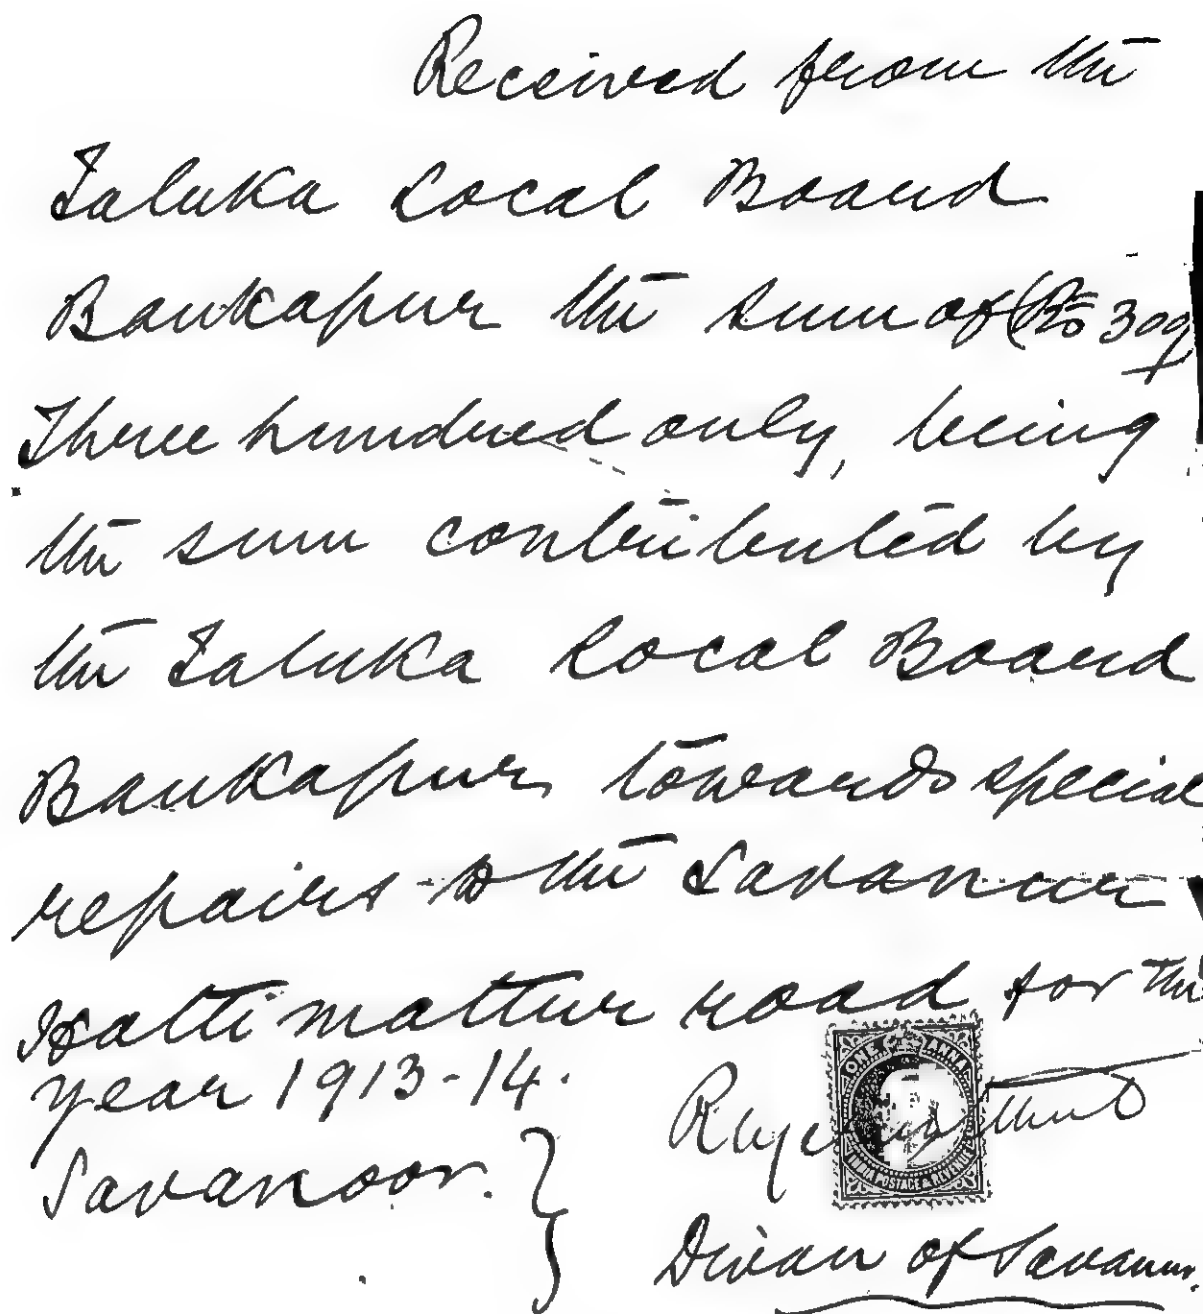 Received from the
Taluka Local Board
Bankapur the sum of (Rs 300)
Three hundred only, being
the sum contributed by
the Taluka Local Board
Bankapur, towards special
repairs to the Savanur
Hattimattur road for the
year 1913-14.
Savanoor.
ONE ANNA
INDIA POSTAGE & REVENUE
Divan of Savanur.